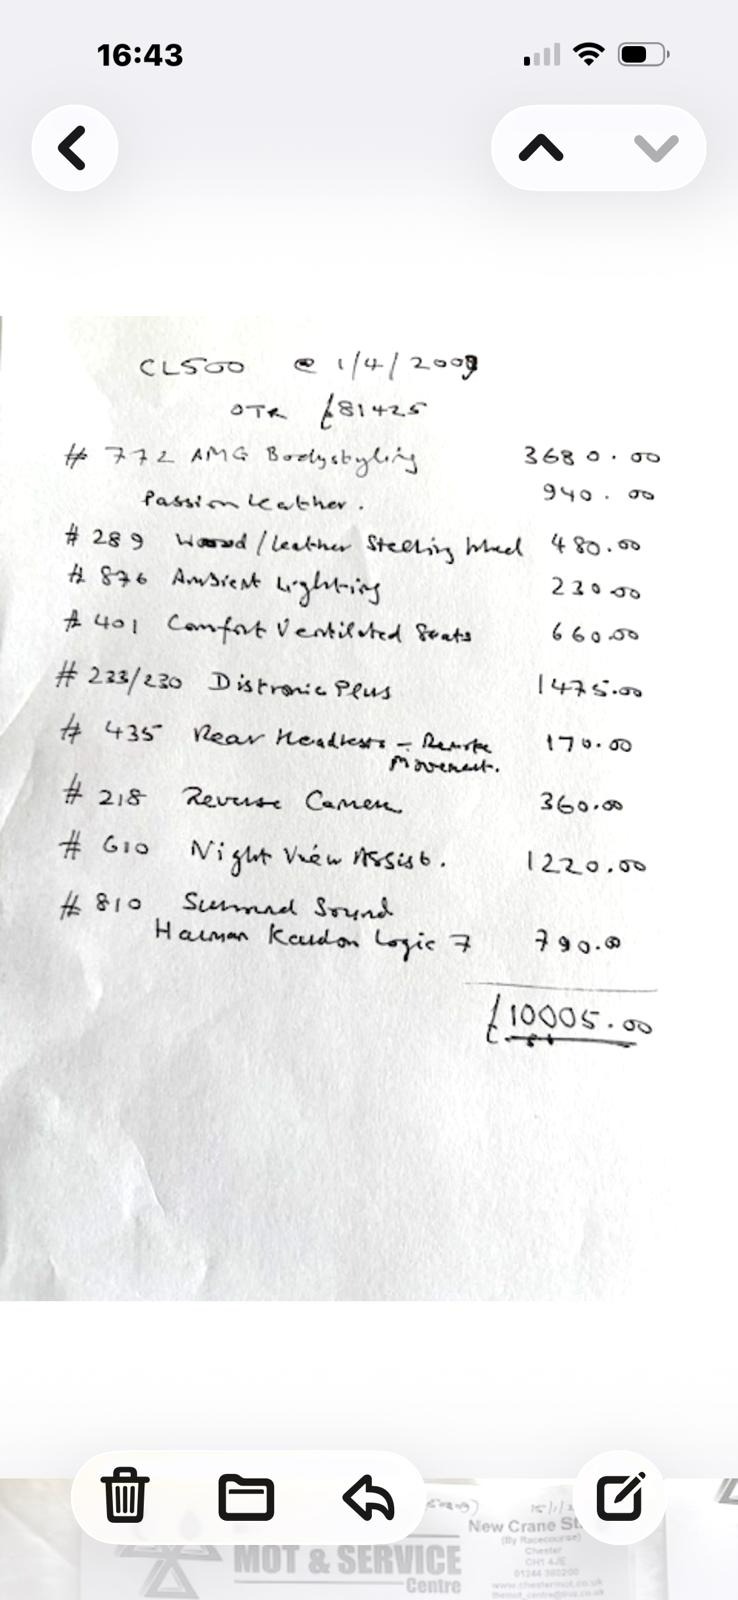 16:43
CL500 @ 1/4/2009
OTR £81425
# 772 AMG Bodystyling 3680.00
Passion Leather. 940.00
# 289 Wood/leather Steering Wheel 480.00
# 876 Ambient Lighting 230.00
# 401 Comfort Ventilated Seats 660.00
# 233/230 Distronic Plus 1475.00
# 435 Rear Headrests - Remote 170.00
Movement.
# 218 Reverse Camera 360.00
# 610 Night View Assist. 1220.00
# 810 Surround Sound
Harman Kardon Logic 7 790.00
£10005.00
New Crane St.
(By Racecourse)
Chester
CH1 4JE
01244 360200
www.chestermot.co.uk
MOT & SERVICE
Centre